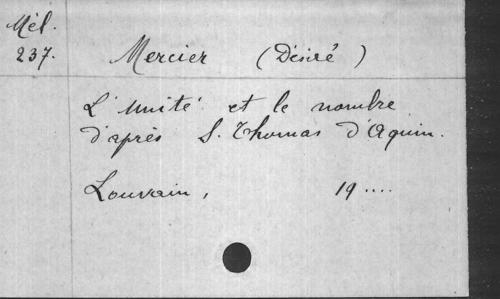 Mél.
237.
Mercier (Désiré)
L'unité et le nombre
d'après S. Thomas d'Aquin.
Louvain, 19....